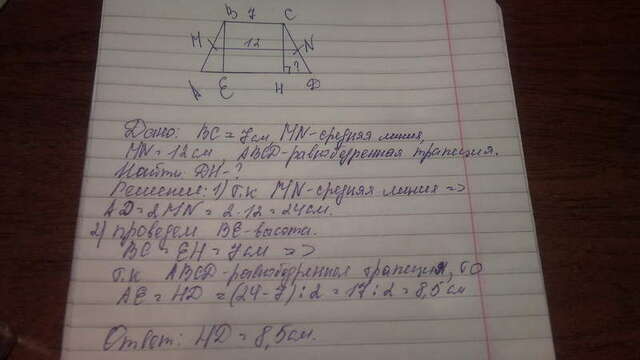 B 7 C
M 12 N
?
A E H D
Дано: BC = 7см, MN-средняя линия,
MN = 12 см, ABCD-равнобедренная трапеция.
Найти: DH-?
Решение: 1) Т.к MN-средняя линия =>
AD = 2MN = 2·12 = 24см.
2) проведём BE-высота.
BC = EH = 7см =>
Т.к ABCD-равнобедренная трапеция, то
AE = HD = (24-7):2 = 17:2 = 8,5 см
Ответ: HD = 8,5см.